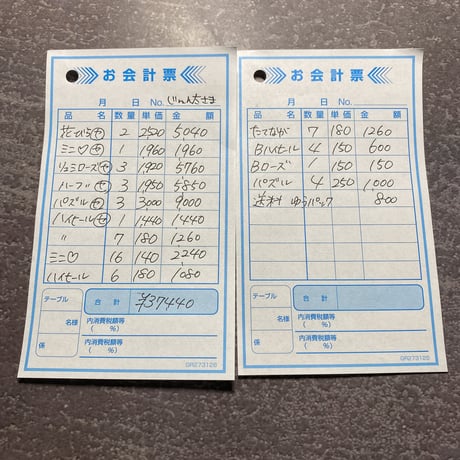 お会計票
月 日 No. じゅんなさま
品 名 数量 単価 金 額
花びらセ 2 2520 5040
ミニ♡セ 1 1960 1960
リュミローズセ 3 1920 5760
ハーブセ 3 1950 5850
パズルセ 3 3000 9000
ハイヒールセ 1 1440 1440
〃 7 180 1260
ミニ♡ 16 140 2240
ハイヒール 6 180 1080
テーブル 合 計 ¥37440
名様 内消費税額等
( %)
係 内消費税額等
( %)
GR273126
お会計票
月 日 No.
品 名 数量 単価 金 額
たてなが 7 180 1260
Bハイヒール 4 150 600
Bローズ 1 150 150
パズル 4 250 1,000
送料 ゆうパック 800
テーブル 合 計
名様 内消費税額等
( %)
係 内消費税額等
( %)
GR273126